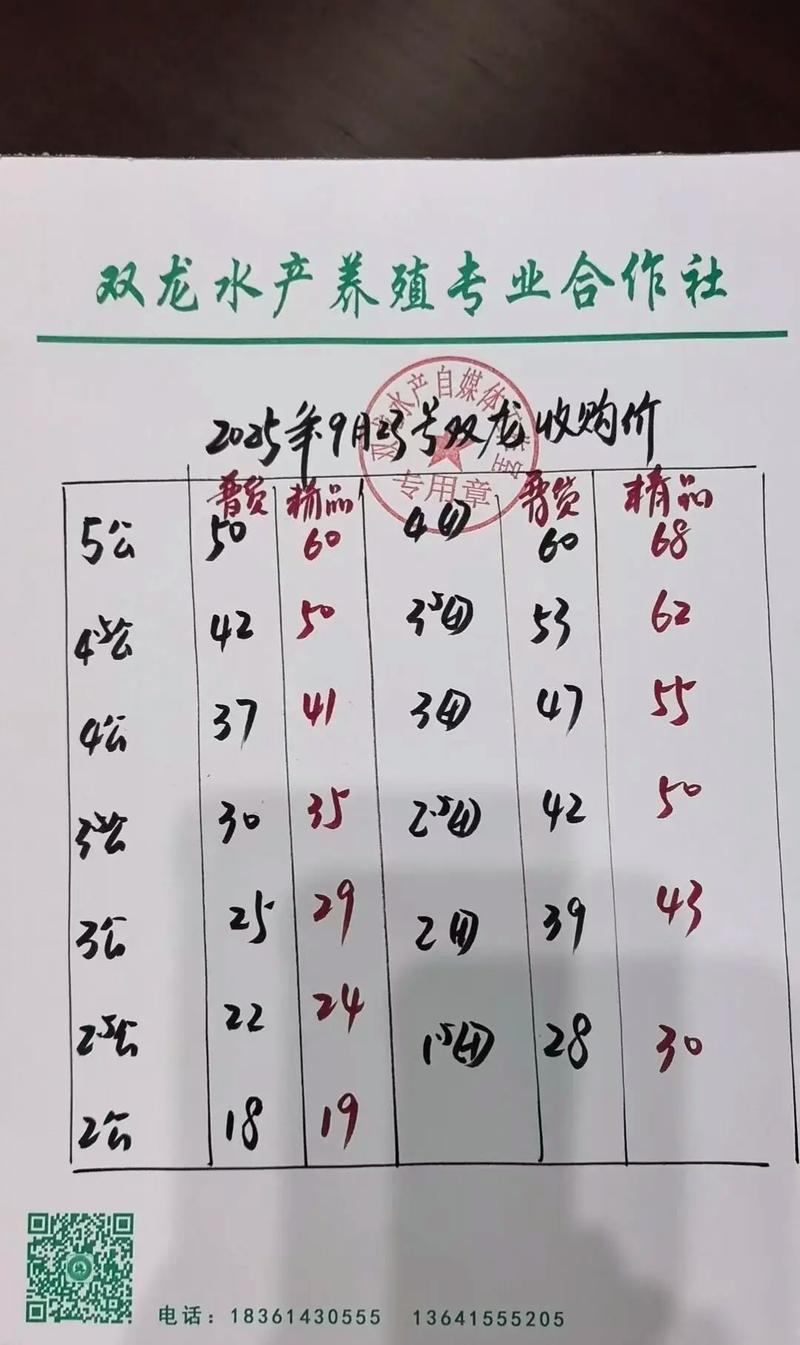 双龙水产养殖专业合作社
2025年9月23号双龙收购价
水产自媒体
专用章
普货 精品 普货 精品
5公 50 60 4母 60 68
4.5公 42 50 3.5母 53 62
4公 37 41 3母 47 55
3.5公 30 35 2.5母 42 50
3公 25 29 2母 39 43
2.5公 22 24 1.5母 28 30
2公 18 19
电话：18361430555 13641555205